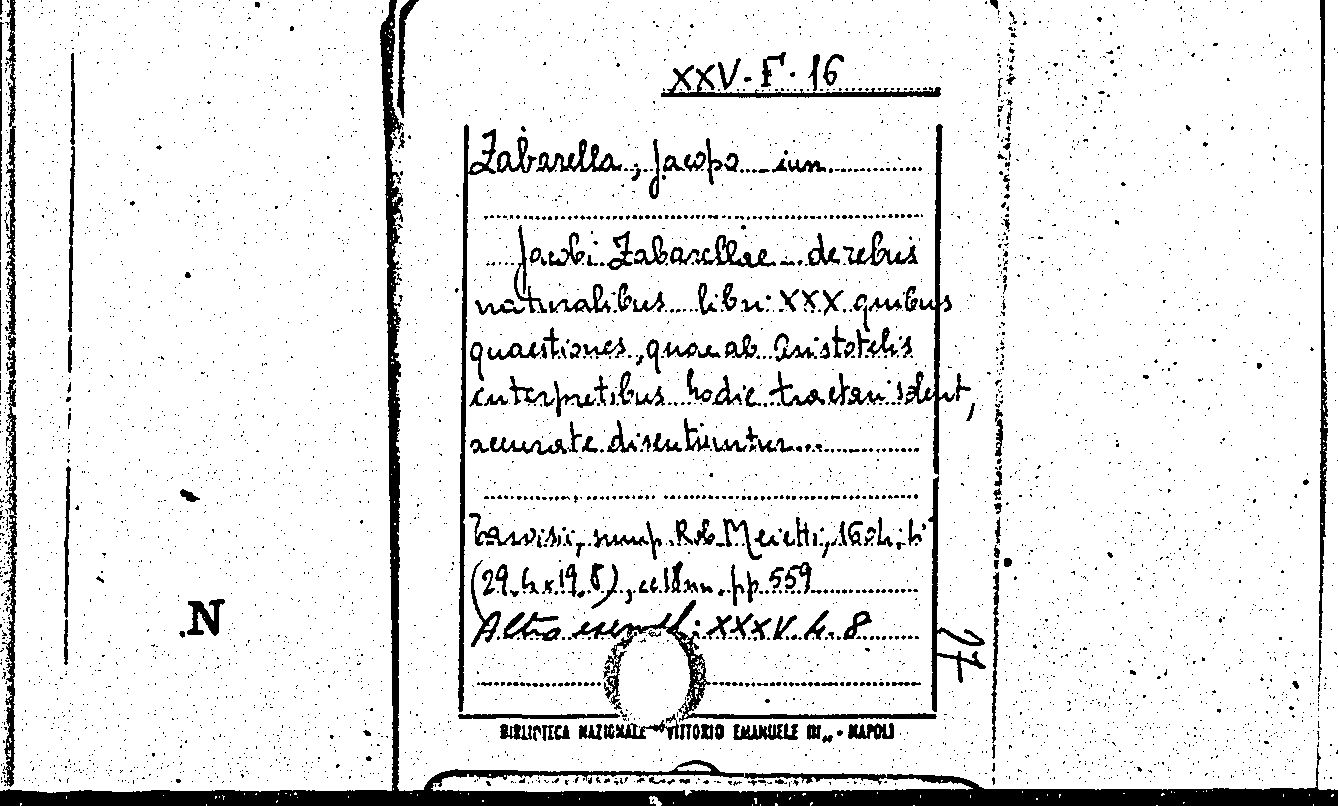 XXV. F. 16
Zabarella, Jacopo iun.
Jacobi Zabarellae de rebus
naturalibus libri XXX quibus
quaestiones, quae ab Aristotelis
interpretibus hodie tractari solent,
accurate discutiuntur...
Tarvisii, sump. Rob. Meietti, 1604, 4°
(29.4x19.8), cc 18 nn. pp 559
Altro esempl: XXXV. 4. 8
27
N
BIBLIOTECA NAZIONALE "VITTORIO EMANUELE III„ - NAPOLI